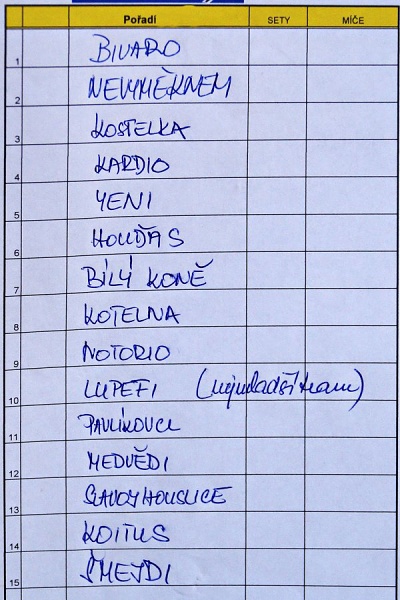 Pořadí SETY MÍČE
1 BIVARO
2 NEVYMĚKNEM
3 KOSTELKA
4 KARDIO
5 YENI
6 HOUĎAS
7 BÍLÝ KONĚ
8 KOTELNA
9 NOTORIO
10 LUPEFI (nejmladší team)
11 PAVLÍKOVCI
12 MEDVĚDI
13 SLAVOJ HOUSLICE
14 KOITUS
15 ŠMEJDI